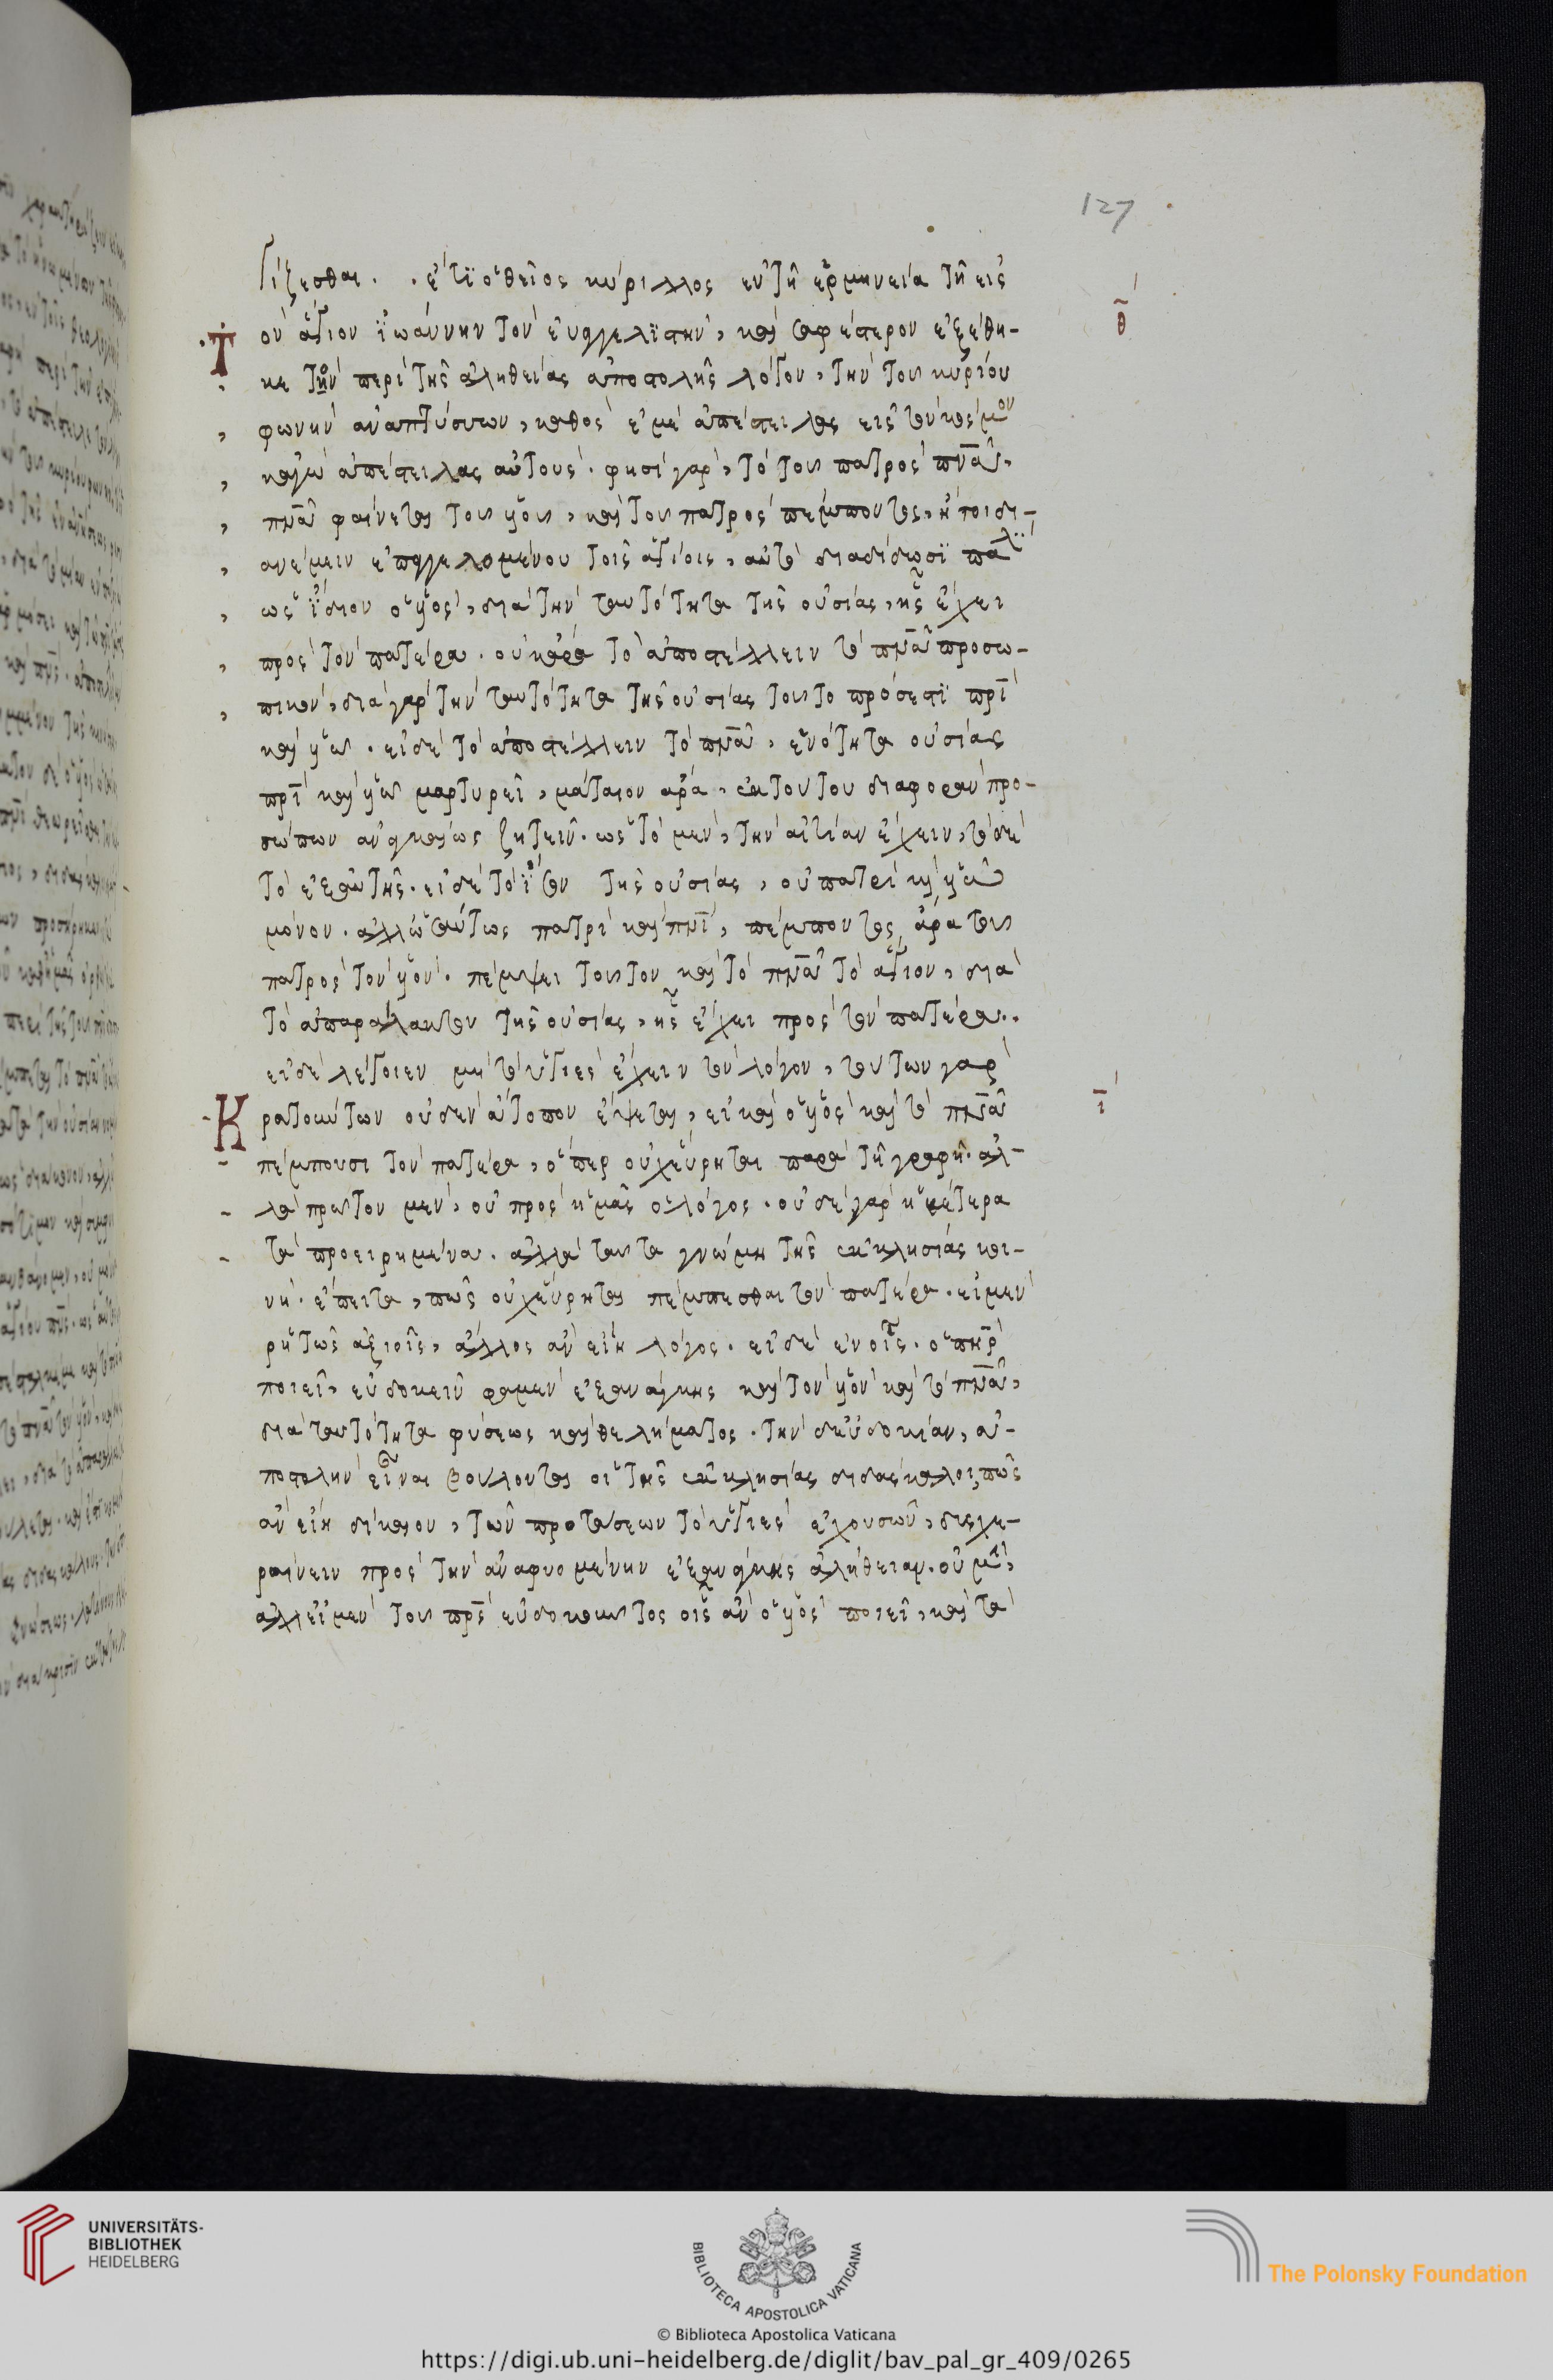 127
γίζεσθαι. . ἔτϊ ὁ θεῖος κύριλλος ἐν τῇ ἑρμηνεία τῇ εἰς
θ
Τὸν ἅγιον ϊωάννην τὸν εὐαγγελϊστὴν, καὶ σαφέστερον ἐξέθη-
κε τὸν περὶ τῆς ἀληθείας ἀποστολῆς λόγον, τὴν τοῦ κυρίου
φωνὴν ἀναπτύσσων, καθὸς ἐμὲ ἀπέστειλας εἰς τὸν κόσμον
κἀγὼ ἀπέστειλας αὐτοὺς. φησὶ γὰρ, τὸ τοῦ πατρὸς πνᾶ,
πνᾶ φαίνεται τοῦ υἱοῦ, καὶ τοῦ πατρὸς πέμποντος, ἤτοι δι-
ανέμειν ἐπαγγελομένου τοῖς ἁγίοις, αὐτὸ διαδίδωσϊ πάλϊ
ὡς ἴδιον ὁ υἱὸς, διὰ τὴν ταυτότητα τῆς οὐσίας, ἧς ἔχει
πρὸς τὸν πατέρα. οὐκ ἄρα τὸ ἀποστέλλειν τὸ πνᾶ προσω-
πικὸν, διὰ γὰρ τὴν ταυτότητα τῆς οὐσίας τοῦτο πρόσεστϊ πρῒ
καὶ υἱῶ. εἰ δὲ τὸ ἀποστέλλειν τὸ πνᾶ, ἑνότητα οὐσίας
πρῒ καὶ υἱῶ μαρτυρεῖ, μάταιον ἄρα, ἐκ τούτου διαφορὰν προ-
σώπων ἀναγκαίως ζητεῖν. ὡς τὸ μὲν, τὴν αἰτίαν ἔχειν, τὸ δὲ
τὸ ἐξ αὐτῆς. εἰ δὲ τὸ ἴσον τῆς οὐσίας, οὐ πατρὶ καὶ υἱῶ
μόνον. ἀλλ' ὡσαύτως πατρὶ καὶ πνῒ, πέμποντος ἄρα τοῦ
πατρὸς τὸν υἱὸν. πέμψει τοῦτον καὶ τὸ πνᾶ τὸ ἅγιον, διὰ
τὸ ἀπαράλακτον τῆς οὐσίας, ἧς ἔχει πρὸς τὸν πατέρα..
εἰ δὲ λέγοιεν μὴ τὸ ὑγιὲς ἔχειν τὸν λόγον, τούτων γὰρ
ι
Κρατούντων οὐδὲν ἄτοπον ἕψεται, εἰ καὶ ὁ υἱὸς καὶ τὸ πνᾶ
πέμπουσι τὸν πατέρα, ὅπερ οὐχ εὕρηται παρὰ τῇ γραφῇ. ἀλ-
λὰ πρῶτον μὲν, οὐ πρὸς ἡμᾶς ὁ λόγος. οὐδὲ γὰρ ἡμέτερα
τὰ προειρημένα. ἀλλὰ ταῦτα γνώμη τῆς ἐκκλησίας κοι-
νὴ. ἔπειτα, πῶς οὐχ εὕρηται πέμπεσθαι τὸν πατέρα. εἰ μὲν
ῥητῶς ἀξιοῖς, ἄλλος ἂν εἴη λόγος. εἰ δὲ ἐν οἷς. ὁ πὴρ
ποιεῖ, εὐδοκεῖν φαμὲν ἐξ ἀνάγκης καὶ τὸν υἱὸν καὶ τὸ πνᾶ,
διὰ ταυτότητα φύσεως καὶ θελήματος. τὴν δ' εὐδοκίαν, ἀ-
ποστολὴν εἶναι βούλονται οἱ τῆς ἐκκλησίας διδάσκαλοι, πῶς
ἂν εἴη δίκαιον, τῶν προτάσεων τὸ ὑγιὲς ἐχουσῶν, δυσχε-
ραίνειν πρὸς τὴν ἀναφυομένην ἐξ ἀνάγκης ἀλήθειαν. οὐ μὴ,
ἀλλ' εἰ μὲν τοῦ πρς εὐδοκοῦντος οἷς ἂν ὁ υἱὸς ποιεῖ, καὶ τὰ
UNIVERSITÄTS-
BIBLIOTHEK
HEIDELBERG
BIBLIOTECA APOSTOLICA VATICANA
The Polonsky Foundation
© Biblioteca Apostolica Vaticana
https://digi.ub.uni-heidelberg.de/diglit/bav_pal_gr_409/0265